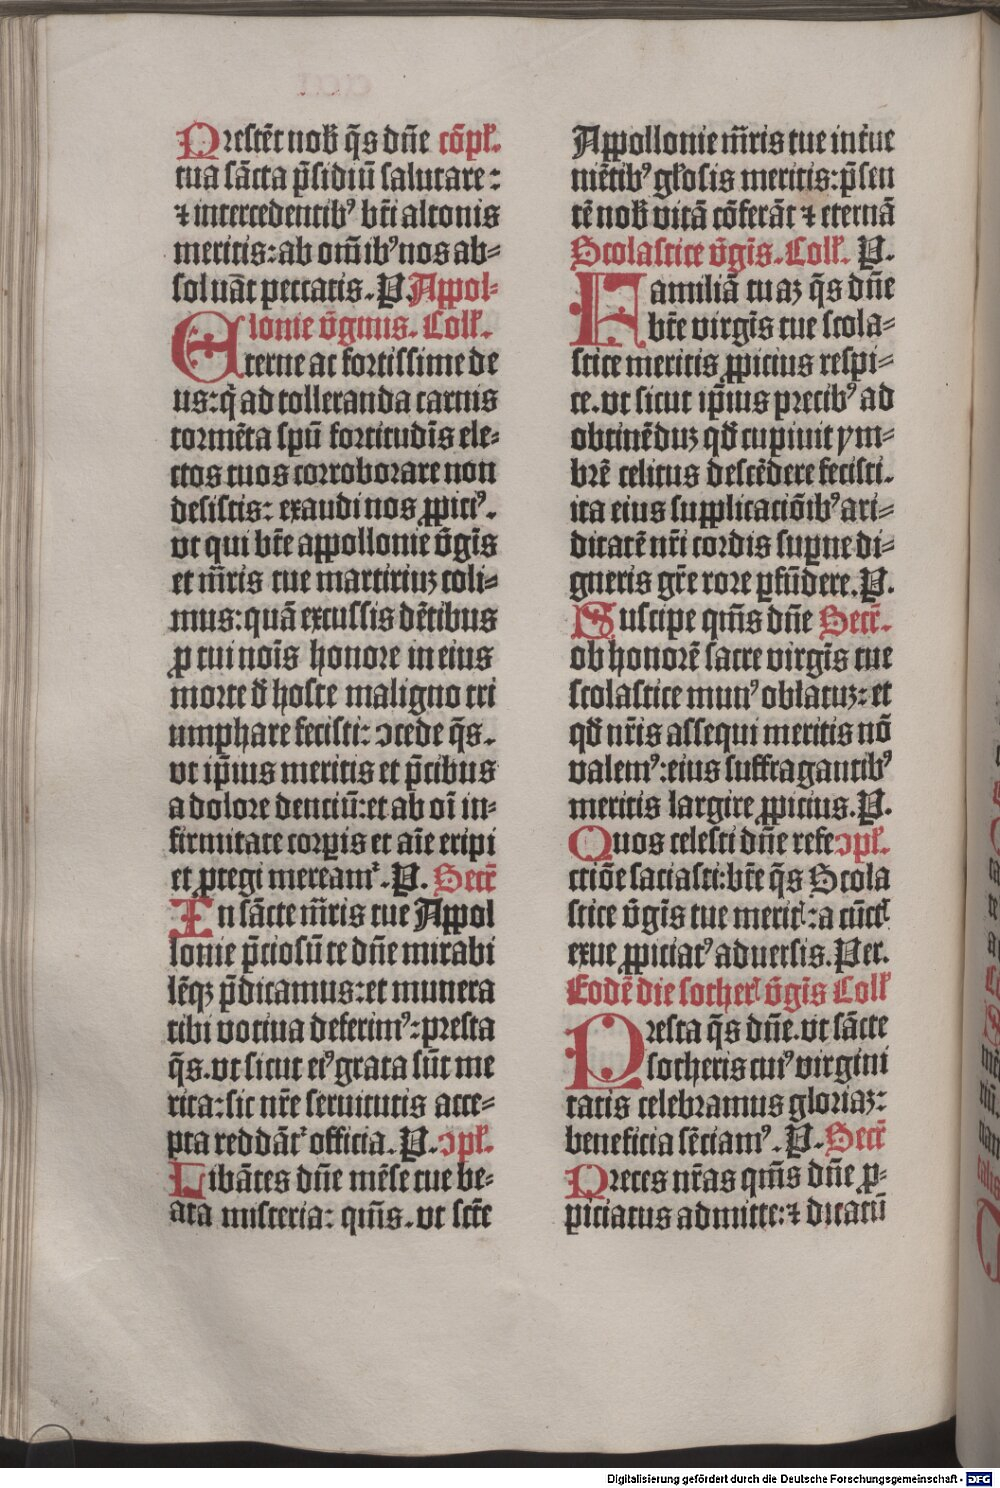 Prestēt nob̄ q̄s dn̄e cōpl̄.
tua sācta p̄sidiū salutare:
⁊ intercedentibꝰ bt̄i altonis
meritis: ab om̄ibꝰ nos ab-
soluāt peccatis. P. Appol-
lonie v̄ginis. Coll̄.
Eterne ac fortissime de
us: q̄ ad tolleranda carnis
tormēta spū fortitudīs ele-
ctos tuos corroborare non
desistis: exaudi nos ꝓpiciꝰ.
vt qui bt̄e appollonie v̄gīs
et m̄ris tue martiriuꝫ coli-
mus: quā excussis dētibus
ꝓ tui noīs honore in eius
morte d̄ hoste maligno tri
umphare fecisti: ↄcede q̄s.
vt ip̄ius meritis et p̄cibus
a dolore denciū: et ab oī in-
firmitate corꝑis et aīe eripi
et ꝓtegi mereamr̄. P. Secr̄
In sācte m̄ris tue Appol
lonie p̄ciosū te dn̄e mirabi
lēqꝫ p̄dicamus: et munera
tibi votiua deferimꝰ: presta
q̄s. vt sicut eiꝰ grata sūt me
rita: sic nr̄e seruitutis acce-
pta reddātr̄ officia. P. ↄpl̄.
Libātes dn̄e mēse tue be-
ata misteria: qm̄s. vt sct̄e
Appollonie m̄ris tue int̄ue
niētibꝰ gl̄osis meritis: p̄sen
tē nob̄ vitā cōferāt ⁊ eternā
Scolastice v̄gīs. Coll̄. P.
Familiā tuaꝫ q̄s dn̄e
bt̄e virgīs tue scola-
stice meritis ꝓpicius respi-
ce. vt sicut ip̄ius precibꝰ ad
obtinēduꝫ qd̄ cupiuit ym-
brē celitus descēdere fecisti.
ita eius supplicatiōibꝰ ari-
ditatē nr̄i cordis suꝑne di-
gneris gr̄e rore ꝑfūdere. P.
Suscipe qm̄s dn̄e Secr̄.
ob honorē sacre virgīs tue
scolastice munꝰ oblatuꝫ: et
qd̄ nr̄is assequi meritis nō
valemꝰ: eius suffragantibꝰ
meritis largire ꝓpicius. P.
Quos celesti dn̄e refe ↄpl̄.
ctiōe saciasti: bt̄e q̄s Scola
stice v̄gīs tue meritꝭ: a cūctꝭ
exue ꝓpiciatꝰ aduersis. Per.
Eodē die sotherꝭ v̄gīs Coll̄
Presta q̄s dn̄e. vt sācte
sotheris cuiꝰ virgini
tatis celebramus gloriaꝫ:
beneficia sēciamꝰ. P. Secr̄
Preces nr̄as qm̄s dn̄e ꝓ-
piciatus admitte: ⁊ dicatū
Digitalisierung gefördert durch die Deutsche Forschungsgemeinschaft - DFG